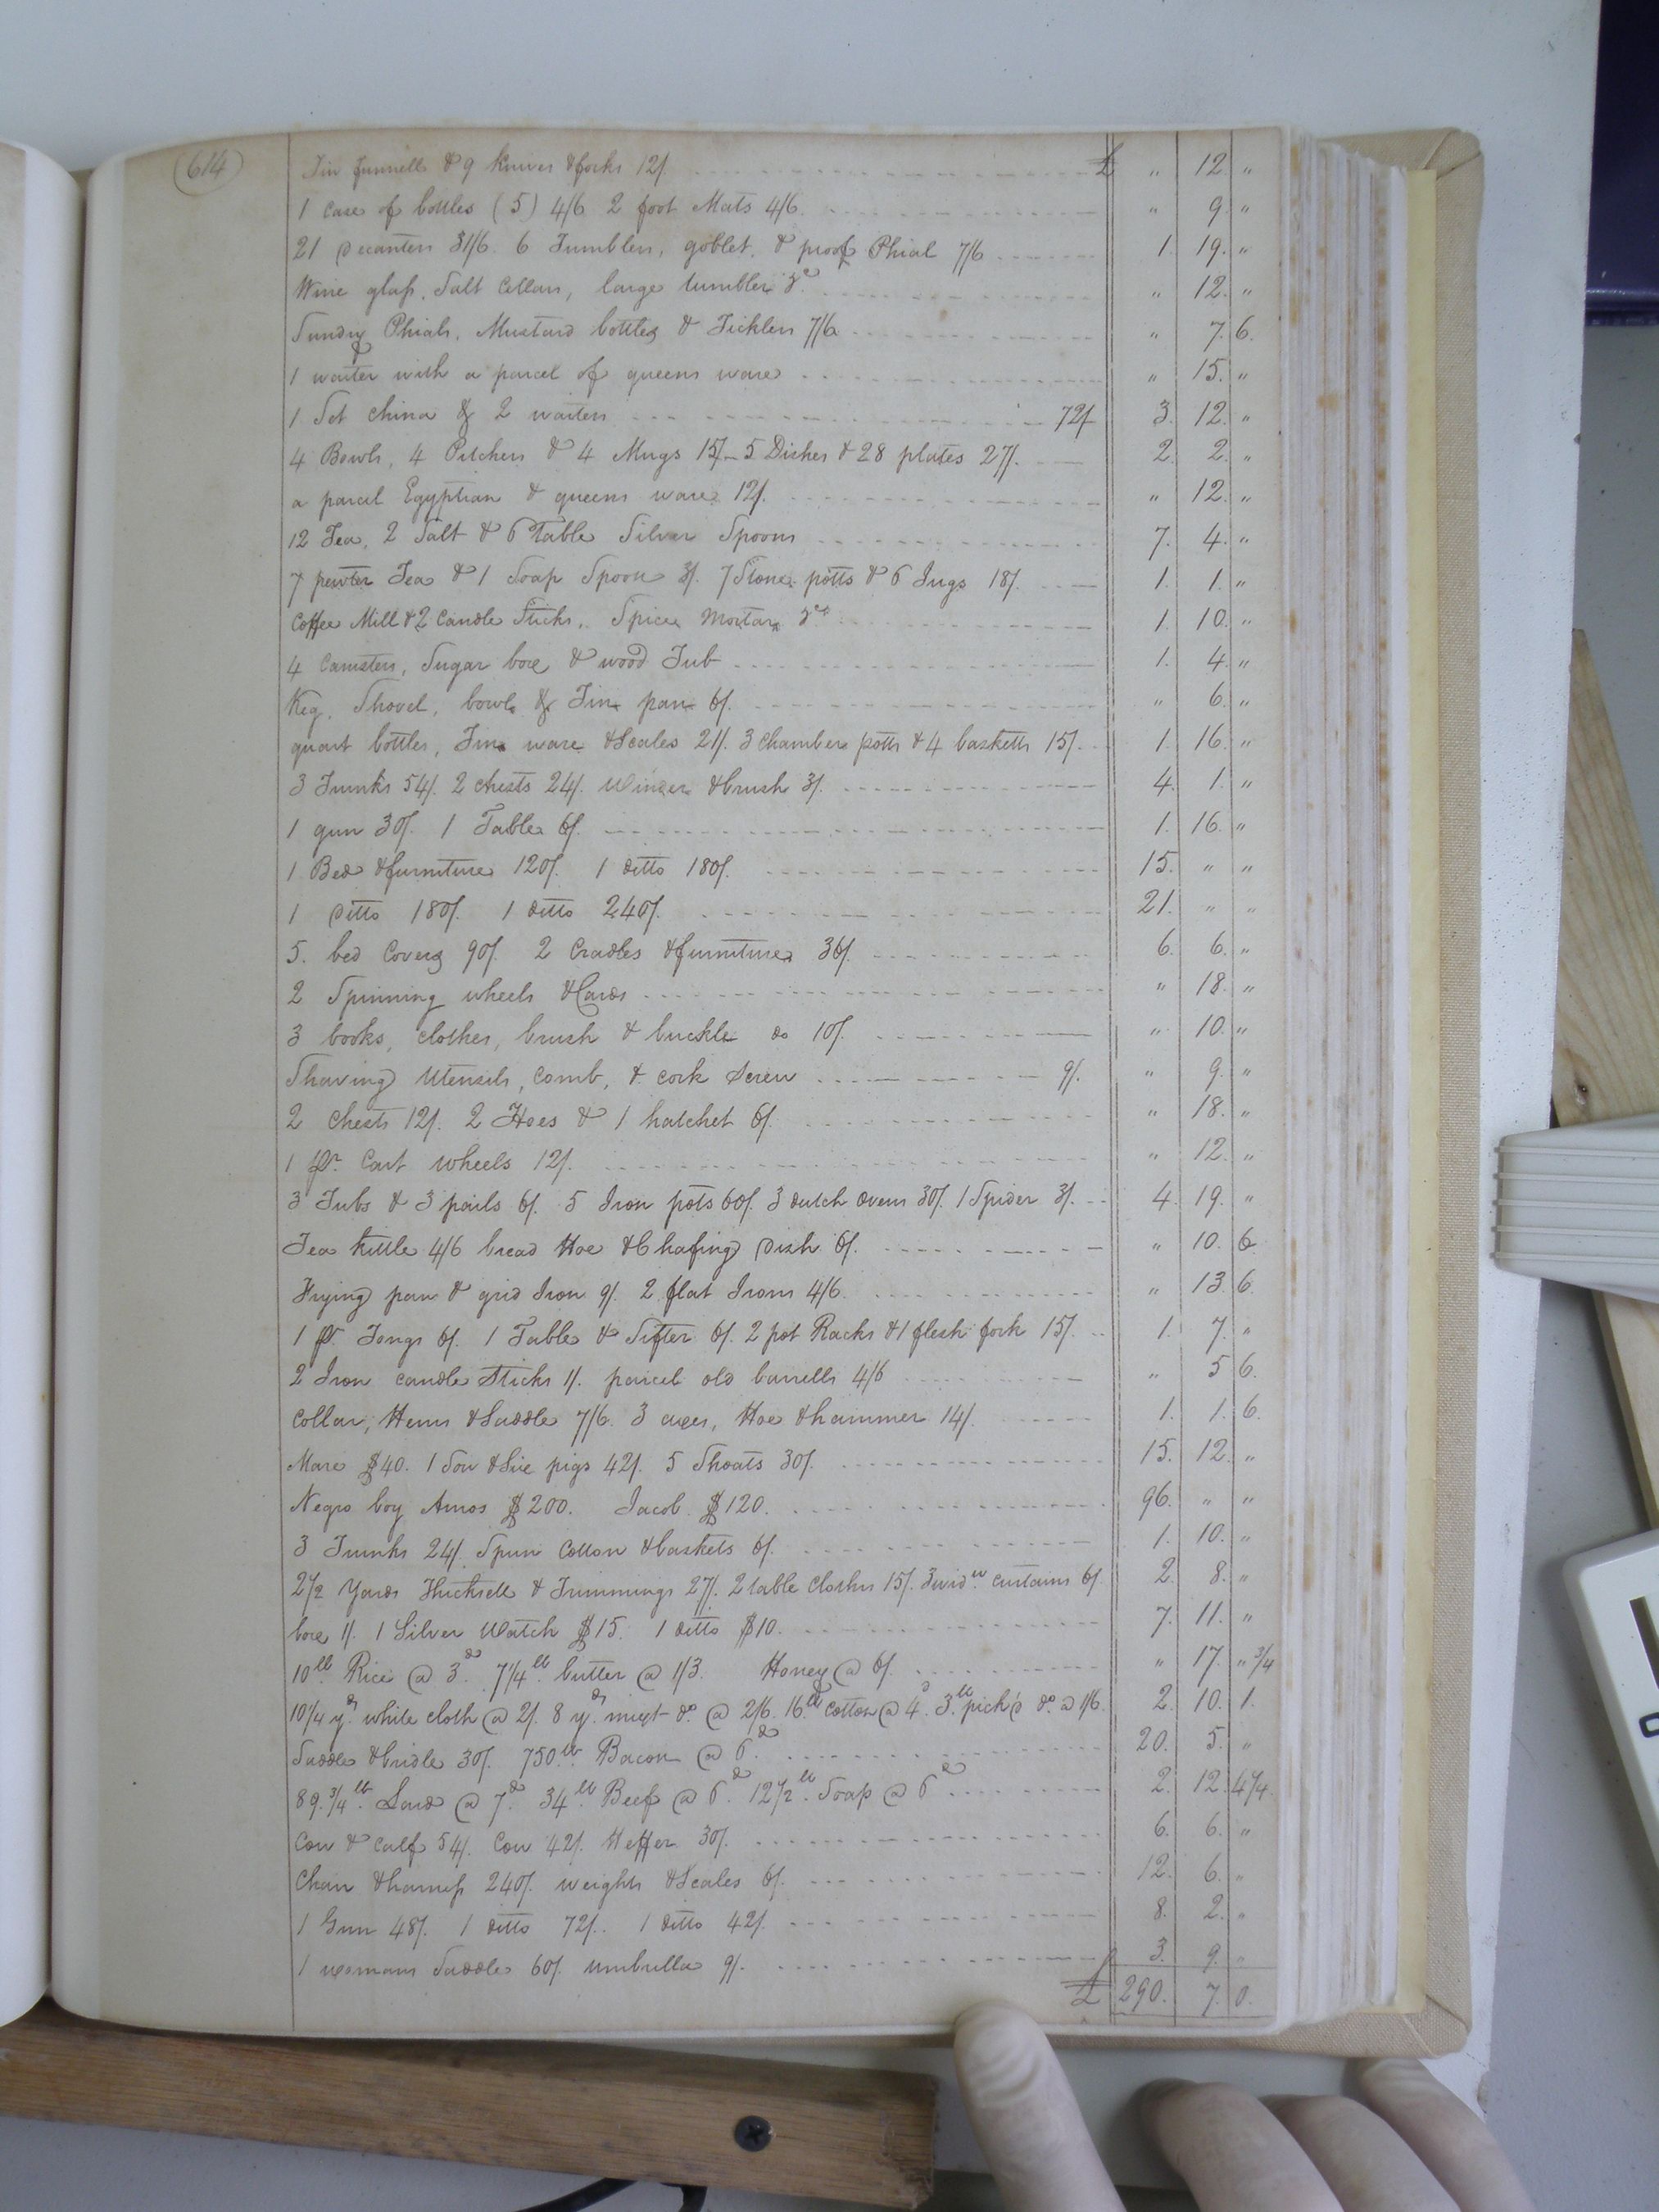 (614)
Tin funnells & 9 knives & forks 12/. £ " 12 "
1 Case of bottles (5) 4/6 2 foot Mats 4/6 " 9. "
21 Decanters 31/6. 6 Tumblers, goblet, & proof Phial 7/6 1. 19. "
Wine glass, Salt Cellars, large tumbler &c " 12. "
Sundry Phials, Mustard bottles & Ticklers 7/6 " 7. 6.
1 waiter with a parcel of queens ware " 15. "
1 Set china & 2 waiters 72/ 3. 12. "
4 Bowls, 4 Pitchers & 4 Mugs 15/– 5 Dishes & 28 plates 27/. 2. 2. "
a parcel Egyptian & queens ware 12/. " 12. "
12 Tea, 2 Salt & 6 Table Silver Spoons 7. 4. "
7 pewter Tea & 1 Soap Spoon 3/. 7 Stone potts & 6 Jugs 18/. 1. 1. "
Coffee Mill & 2 Candle Sticks, Spice Mortar &c 1. 10. "
4 Canisters, Sugar box & wood Tub 1. 4. "
Keg, Shovel, bowl & Tin pan 6/. " 6. "
quart bottles, Tin ware & Scales 21/. 3 Chamber potts & 4 basketts 15/. 1. 16. "
3 Trunks 54/. 2 chests 24/. & brush 3/. 4. 1. "
1 gun 30/. 1 Table 6/. 1. 16. "
1 Bed & furniture 120/. 1 ditto 180/. 15. " "
1 Ditto 180/. 1 ditto 240/. 21. " "
5. bed Covers 90/. 2 Cradles & furniture 36/. 6. 6. "
2 Spinning wheels & Cards " 18. "
3 books, clothes, brush & buckle do 10/. " 10. "
Shaving Utensils, Comb, & cork Screw 9/. " 9. "
2 Chests 12/. 2 Hoes & 1 hatchet 6/. " 18. "
1 pr. Cart wheels 12/. " 12. "
3 Tubs & 3 pails 6/. 5 Iron pots 60/. 3 dutch ovens 30/. 1 Spider 3/. 4. 19. "
Tea Kittle 4/6 bread Hoe & Chafing Dish 6/. " 10. 6
Frying pan & grid Iron 9/. 2 flat Irons 4/6. " 13 6.
1 pr. Tongs 6/. 1 Table & Sifter 6/. 2 pot Racks & 1 flesh fork 15/. 1. 7. "
2 Iron candle Sticks 1/. parcel old barrells 4/6 " 5 6.
Collar, Hems & Saddle 7/6. 3 axes, Hoe & hammer 14/. 1. 1. 6.
Mare $40. 1 Sow & Six pigs 42/. 5 Shoats 30/. 15. 12. "
Negro boy Amos $200. Jacob $120. 96. " "
3 Trunks 24/. Spun Cotton & baskets 6/. 1. 10. "
2 1/2 Yards Thicksett & Trimmings 27/. 2 table Cloths 15/. 3 wid.w curtains 6/. 2. 8. "
box 1/. 1 Silver Watch $15. 1 ditto $10. 7. 11. "
10lb Rice @ 3d. 7 1/4lb butter @ 1/3. Honey @ 6/. " 17. " 3/4
10 1/4 yds. white cloth @ 2/. 8 yds. mixt do. @ 2/6. 16lb Cotton @ 4d. 3lb pick'd do. @ 1/6 2. 10. 1.
Saddle & bridle 30/. 750lb. Bacon @ 6d. 20. 5. "
89. 3/4lb. Lard @ 7d. 34lb. Beef @ 6d. 12 1/2lb. Soap @ 6d 2. 12. 4 1/4
Cow & Calf 54/. Cow 42/. Heffer 30/. 6. 6. "
Chair & harness 240/. weights & Scales 6/. 12. 6. "
1 Gun 48/. 1 ditto 72/. 1 ditto 42/. 8. 2. "
1 womans Saddle 60/. umbrella 9/. 3. 9. "
£ 290. 7. 0.